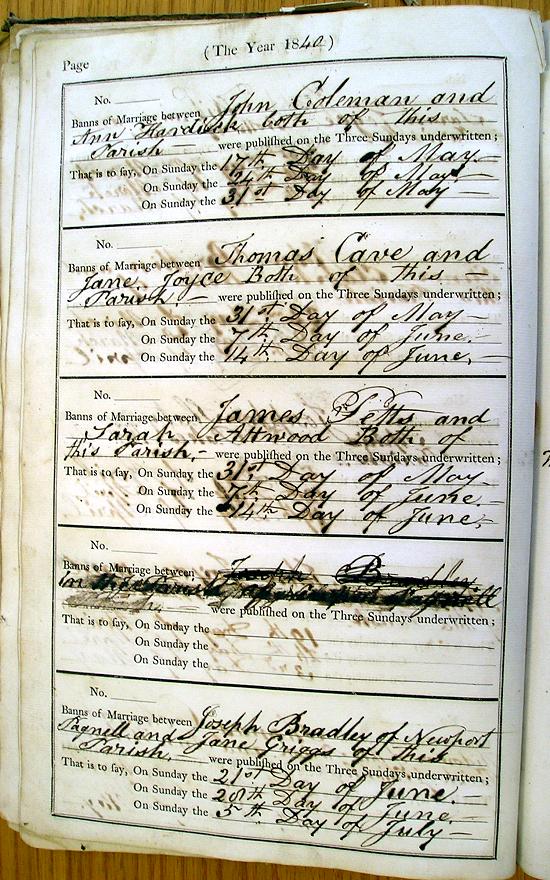 (The Year 1840)
Page
No.
Banns of Marriage between John Coleman and
Ann Hardwick both of this
Parish — were publiſhed on the Three Sundays underwritten;
That is to ſay, On Sunday the 17th Day of May
On Sunday the 24th Day of May
On Sunday the 31st Day of May
No.
Banns of Marriage between Thomas Cave and
Jane Joyce Both of this —
Parish — were publiſhed on the Three Sundays underwritten;
That is to ſay, On Sunday the 31st Day of May —
On Sunday the 7th Day of June.
On Sunday the 14th Day of June. —
No.
Banns of Marriage between James Petts and
Sarah Attwood Both of
this Parish. — were publiſhed on the Three Sundays underwritten;
That is to ſay, On Sunday the 31st Day of May
On Sunday the 7th Day of June —
On Sunday the 14th Day of June. —
No.
Banns of Marriage between Joseph Bradley
were publiſhed on the Three Sundays underwritten;
That is to ſay, On Sunday the
On Sunday the
On Sunday the
No.
Banns of Marriage between Joseph Bradley of Newport
Pagnell and Jane Griggs of this
Parish. — were publiſhed on the Three Sundays underwritten;
That is to ſay, On Sunday the 21st Day of June. —
On Sunday the 28th Day of June. —
On Sunday the 5th Day of July —